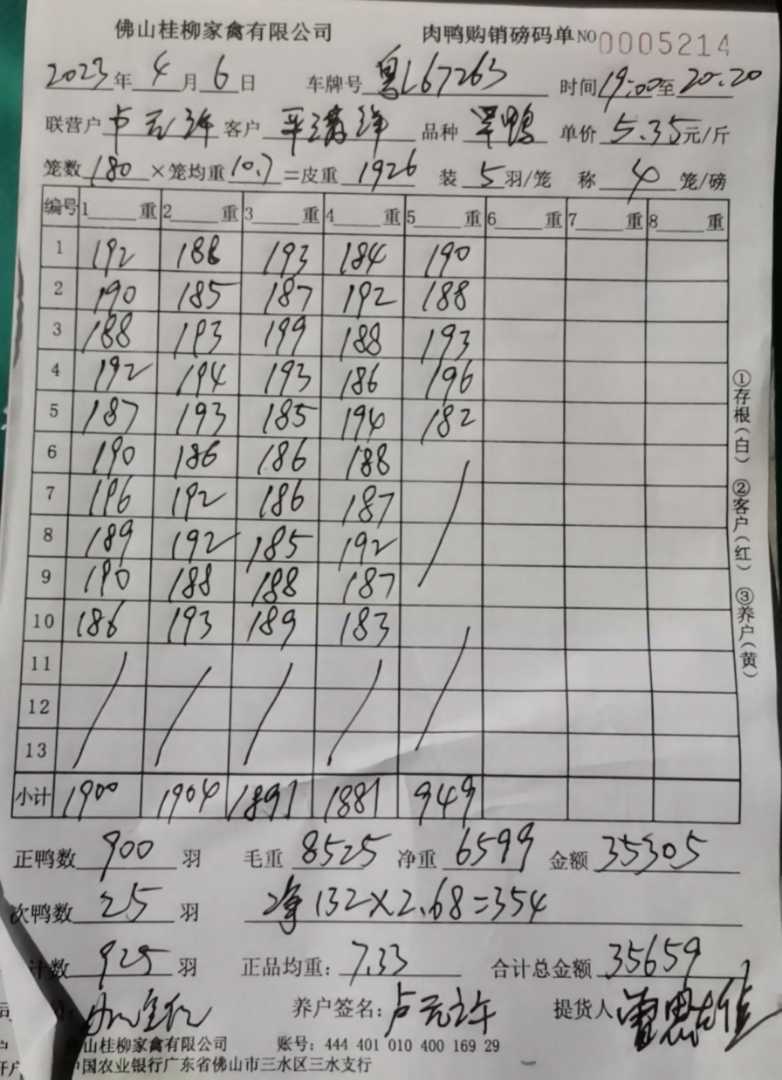 佛山桂柳家禽有限公司 肉鸭购销磅码单 NO 0005214
2023年4月6日 车牌号 粤L67263 时间19:00至20:20
联营户 卢 客户 品种 鸭 单价 5.35元/斤
笼数 180 ×笼均重 10.7 =皮重 1926 装 5 羽/笼 称 4 笼/磅
编号 1 重 2 重 3 重 4 重 5 重 6 重 7 重 8 重
1 192 188 193 184 190
2 190 185 187 192 188
3 188 193 199 188 193
4 192 194 193 186 196
5 187 193 185 194 182
6 190 186 186 188
7 196 192 186 187
8 189 192 185 192
9 190 188 188 187
10 186 193 189 183
11
12
13
小计 1900 1904 1891 1881 949
正鸭数 900 羽 毛重 8525 净重 6599 金额 35305
次鸭数 25 羽 净132×2.68=354
计数 925 羽 正品均重: 7.33 合计总金额 35659
养户签名: 卢 提货人
山桂柳家禽有限公司 账号: 444 401 010 400 169 29
中国农业银行广东省佛山市三水区三水支行
①存根(白) ②客户(红) ③养户(黄)